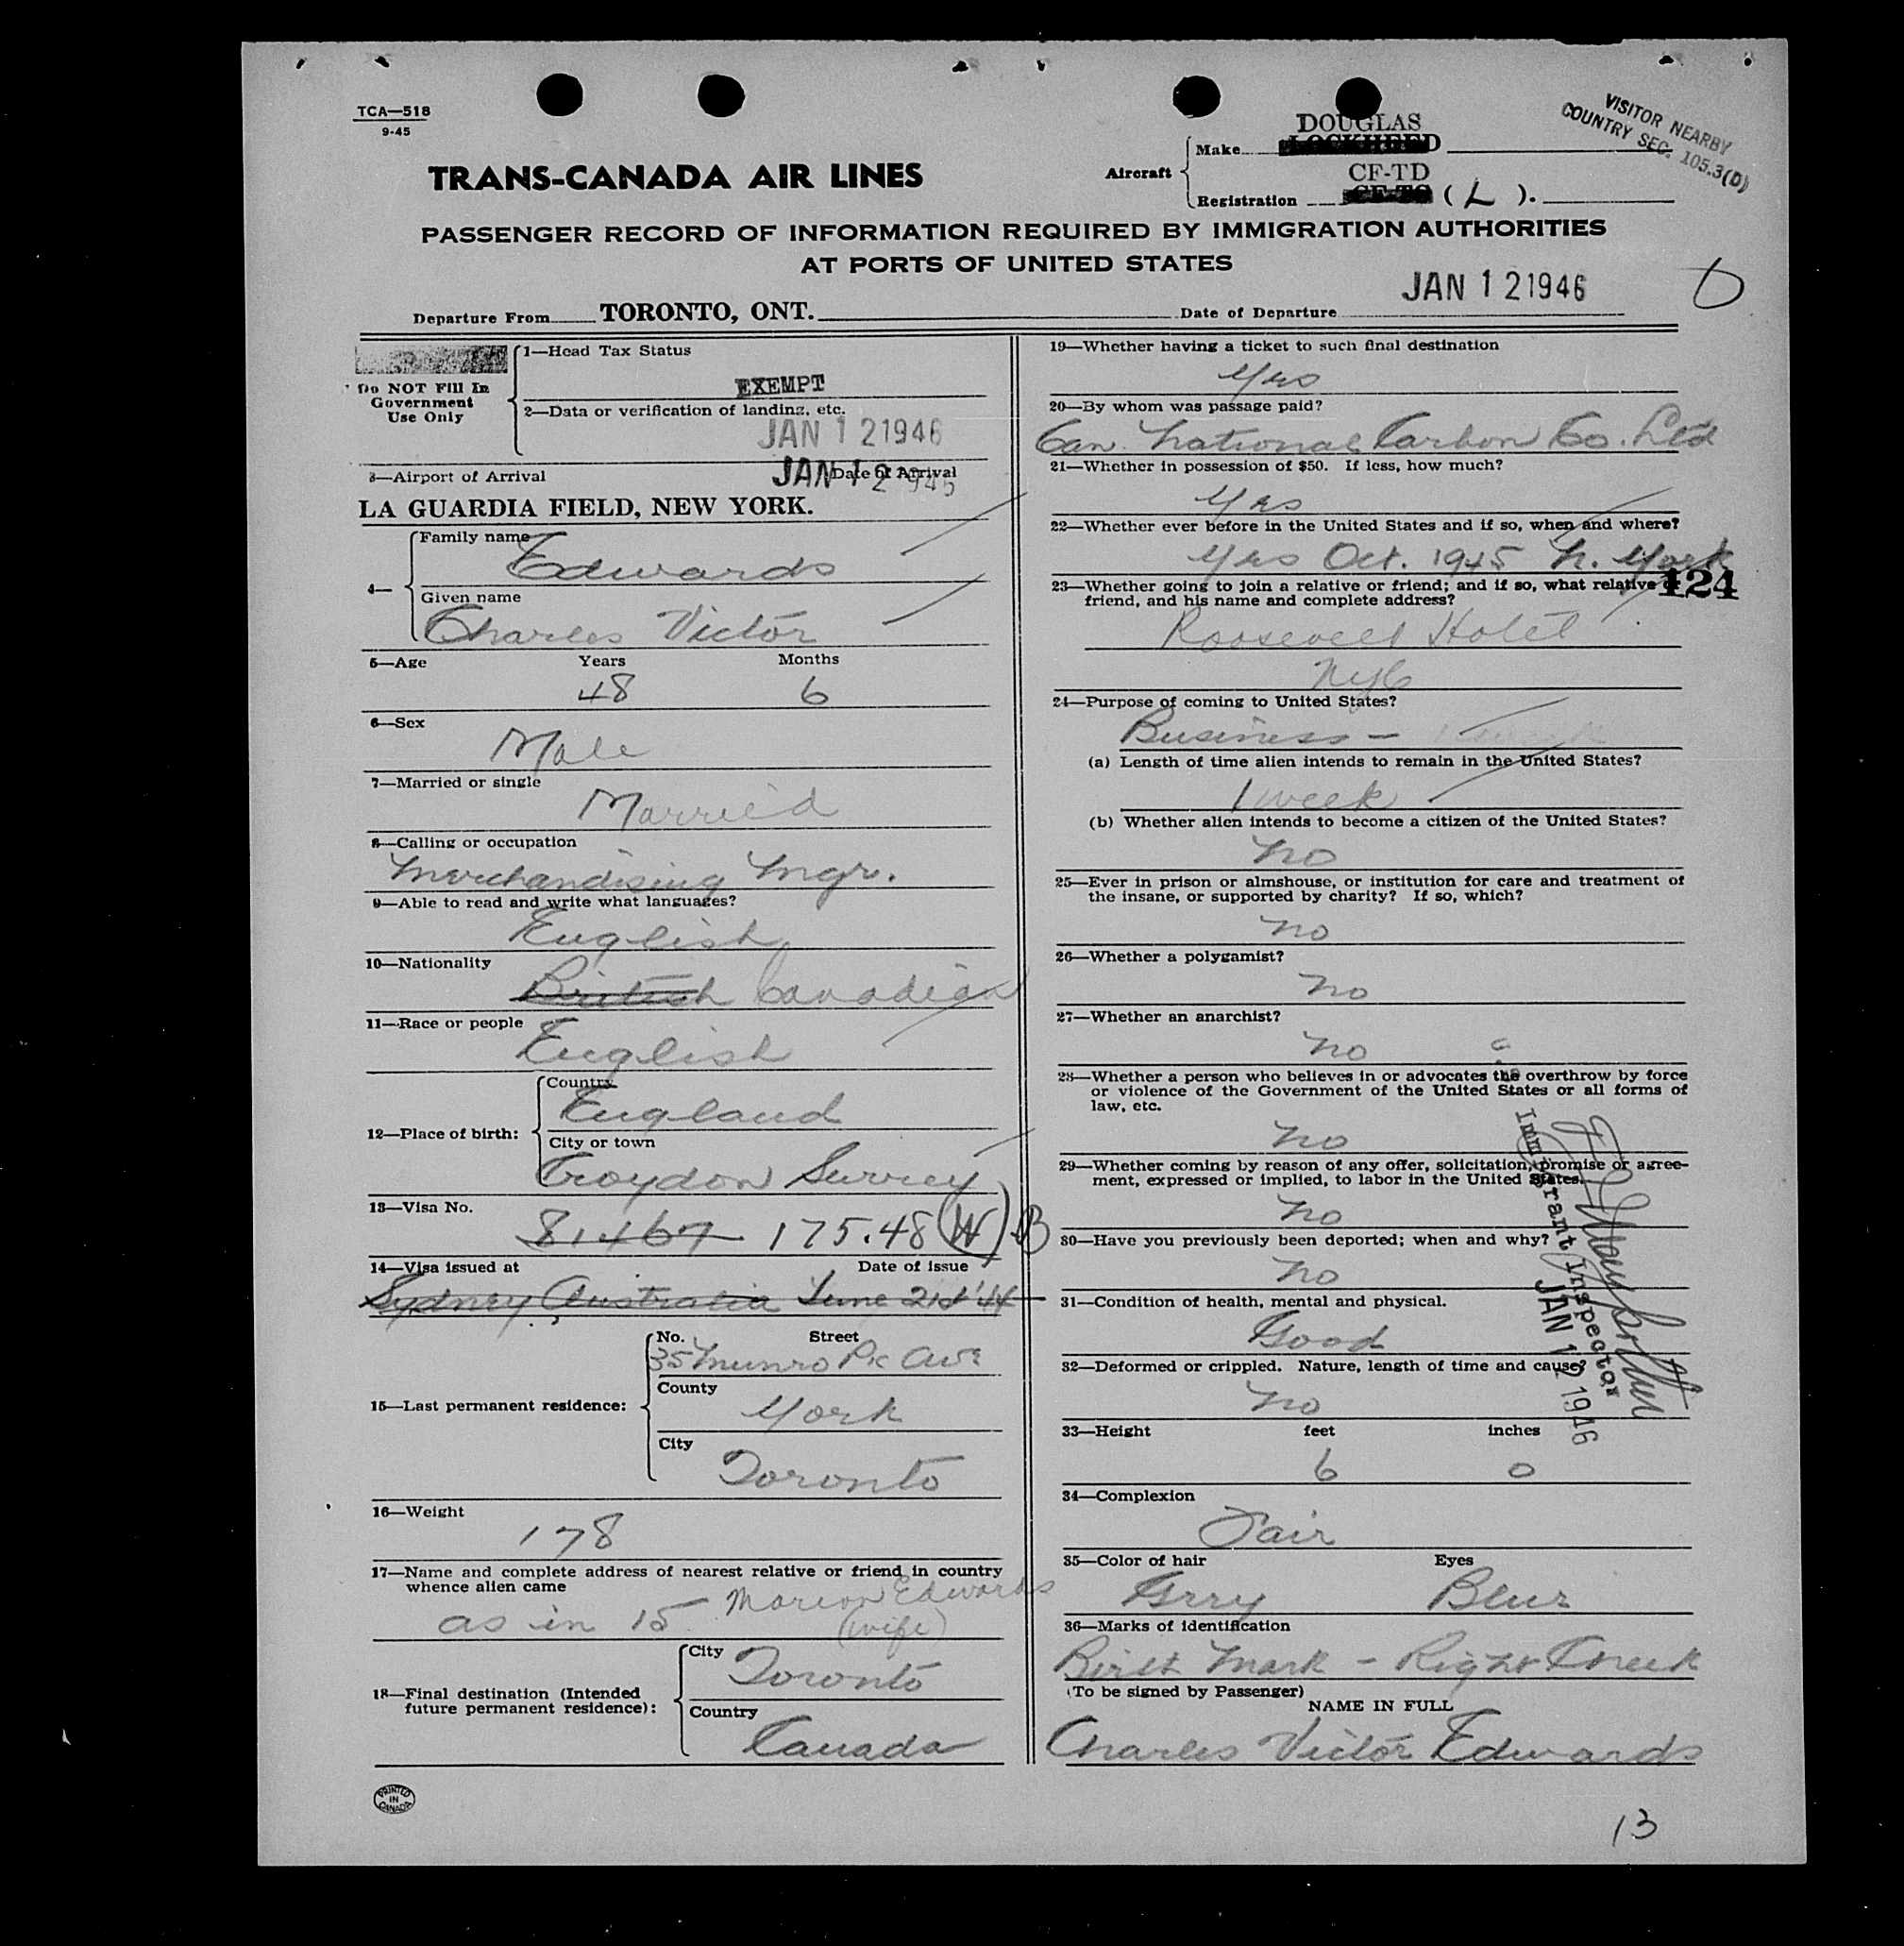 TCA—518
9-45
VISITOR NEARBY
COUNTRY SEC. 105.3(D)
TRANS-CANADA AIR LINES
Aircraft
Make DOUGLAS
LOCKHEED
Registration CF-TD
CF-TC (L).
PASSENGER RECORD OF INFORMATION REQUIRED BY IMMIGRATION AUTHORITIES
AT PORTS OF UNITED STATES
Departure From TORONTO, ONT.
Date of Departure JAN 12 1946
D
Do NOT Fill In
Government
Use Only
1—Head Tax Status
EXEMPT
2—Data or verification of landing, etc.
JAN 12 1946
3—Airport of Arrival
Date of Arrival
JAN 12 1946
LA GUARDIA FIELD, NEW YORK.
4—
Family name
Edwards
Given name
Charles Victor
5—Age Years Months
48 6
6—Sex
Male
7—Married or single
Married
8—Calling or occupation
Merchandising Mgr.
9—Able to read and write what languages?
English
10—Nationality
British Canadian
11—Race or people
English
12—Place of birth:
Country
England
City or town
Croydon Surrey
13—Visa No.
81467 175.48 (W) B
14—Visa issued at Date of issue
Sydney, Australia June 21st '44
15—Last permanent residence:
No. Street
35 Munro Pk Ave
County
York
City
Toronto
16—Weight
178
17—Name and complete address of nearest relative or friend in country
whence alien came
as in 15 Marion Edwards
(wife)
18—Final destination (Intended
future permanent residence):
City
Toronto
Country
Canada
PRINTED
IN
CANADA
19—Whether having a ticket to such final destination
Yes
20—By whom was passage paid?
Can. National Carbon Co. Ltd
21—Whether in possession of $50. If less, how much?
Yes
22—Whether ever before in the United States and if so, when and where?
Yes Oct. 1945 N. York
23—Whether going to join a relative or friend; and if so, what relative or
friend, and his name and complete address?
124
Roosevelt Hotel
NYC
24—Purpose of coming to United States?
Business –
(a) Length of time alien intends to remain in the United States?
1 week
(b) Whether alien intends to become a citizen of the United States?
No
25—Ever in prison or almshouse, or institution for care and treatment of
the insane, or supported by charity? If so, which?
No
26—Whether a polygamist?
No
27—Whether an anarchist?
No
28—Whether a person who believes in or advocates the overthrow by force
or violence of the Government of the United States or all forms of
law, etc.
No
29—Whether coming by reason of any offer, solicitation, promise or agree-
ment, expressed or implied, to labor in the United States.
No
30—Have you previously been deported; when and why?
No
31—Condition of health, mental and physical.
Good
32—Deformed or crippled. Nature, length of time and cause?
No
Immigrant Inspector
JAN 12 1946
33—Height feet inches
6 0
34—Complexion
Fair
35—Color of hair Eyes
Grey Blue
36—Marks of identification
Birth Mark – Right Cheek
(To be signed by Passenger)
NAME IN FULL
Charles Victor Edwards
13